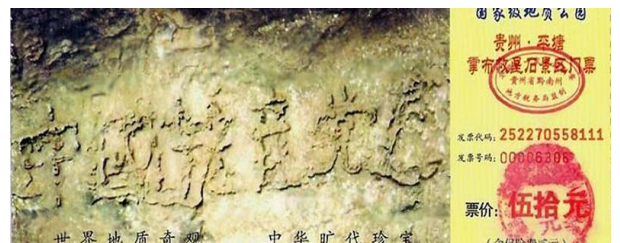 中國共产党亡
世界地质奇观 中华旷代珍宝
国家级地质公园
贵州·平塘
掌布藏字石景区门票
贵州省黔南州
地方税务局监制
发票代码：252270558111
发票号码：00006306
票价：伍拾元